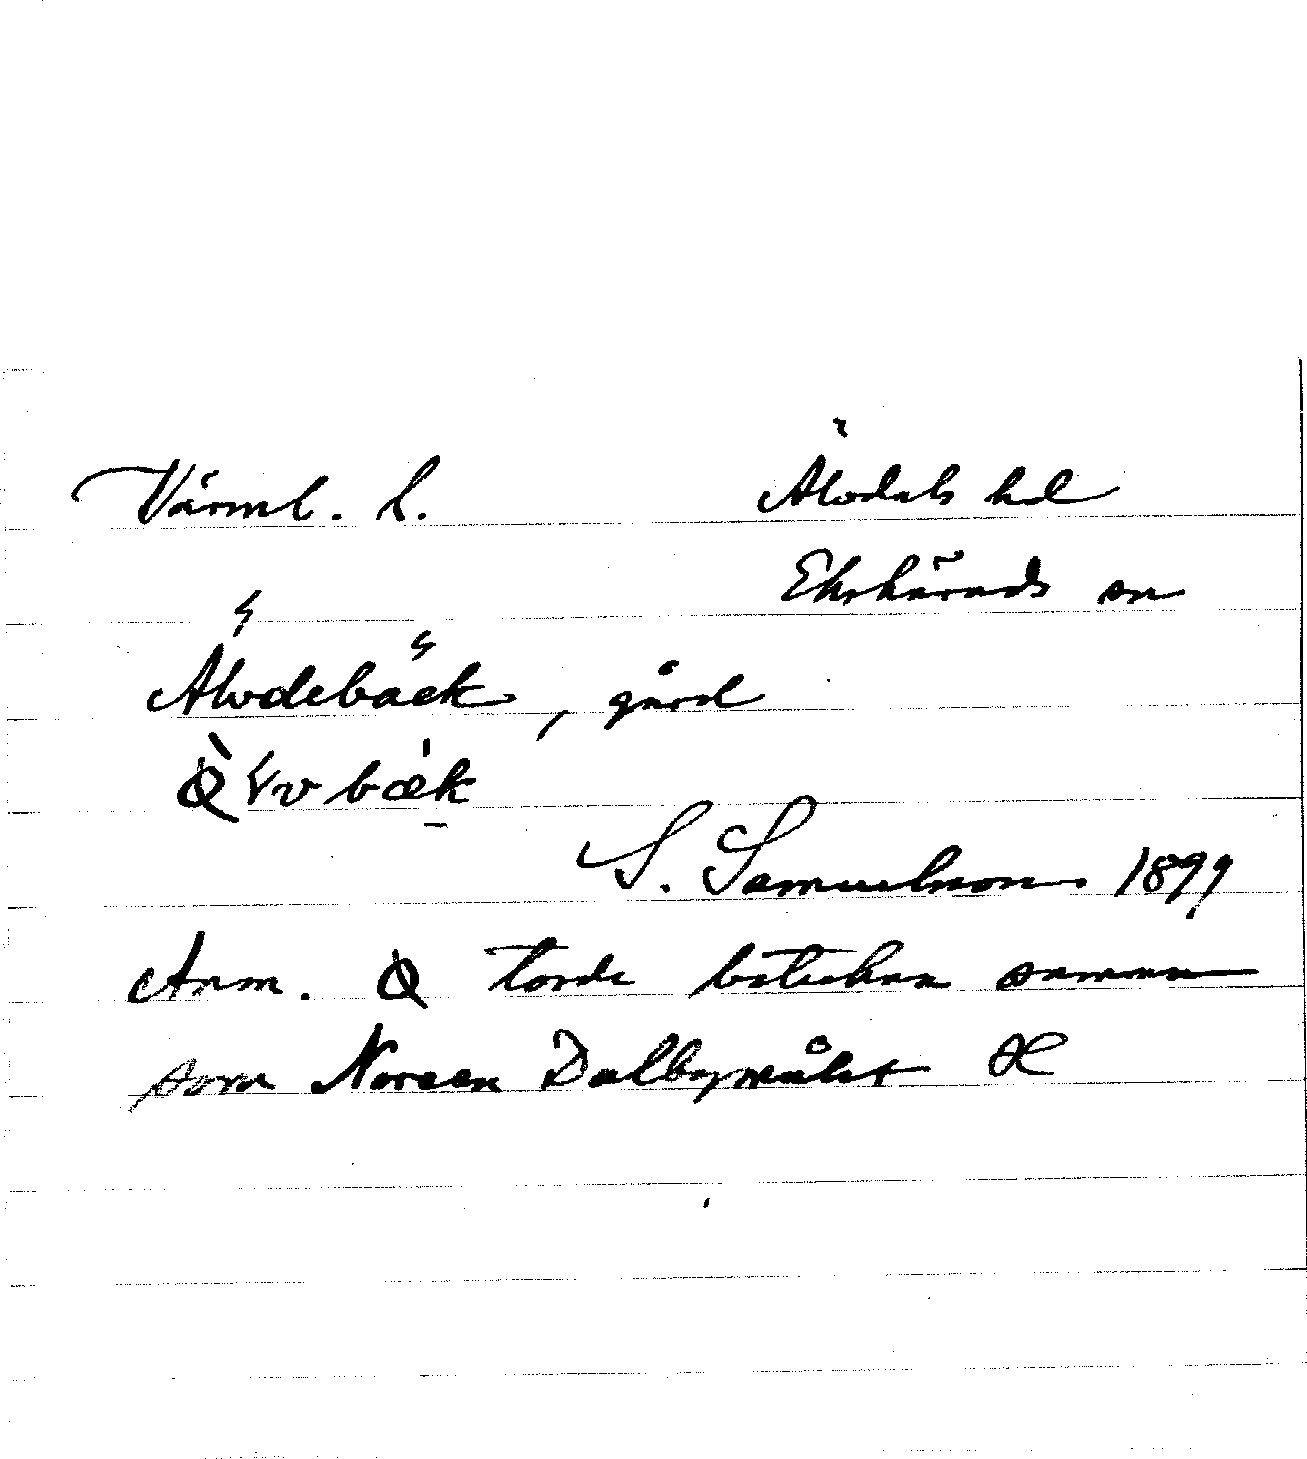 Värml. l.
Älvdals hd
Ekshärads sn
Älvdebäck, gård
vbæk
S. Samuelsson 1899
Anm. torde beteckna samma
som Noreen Dalbymålet